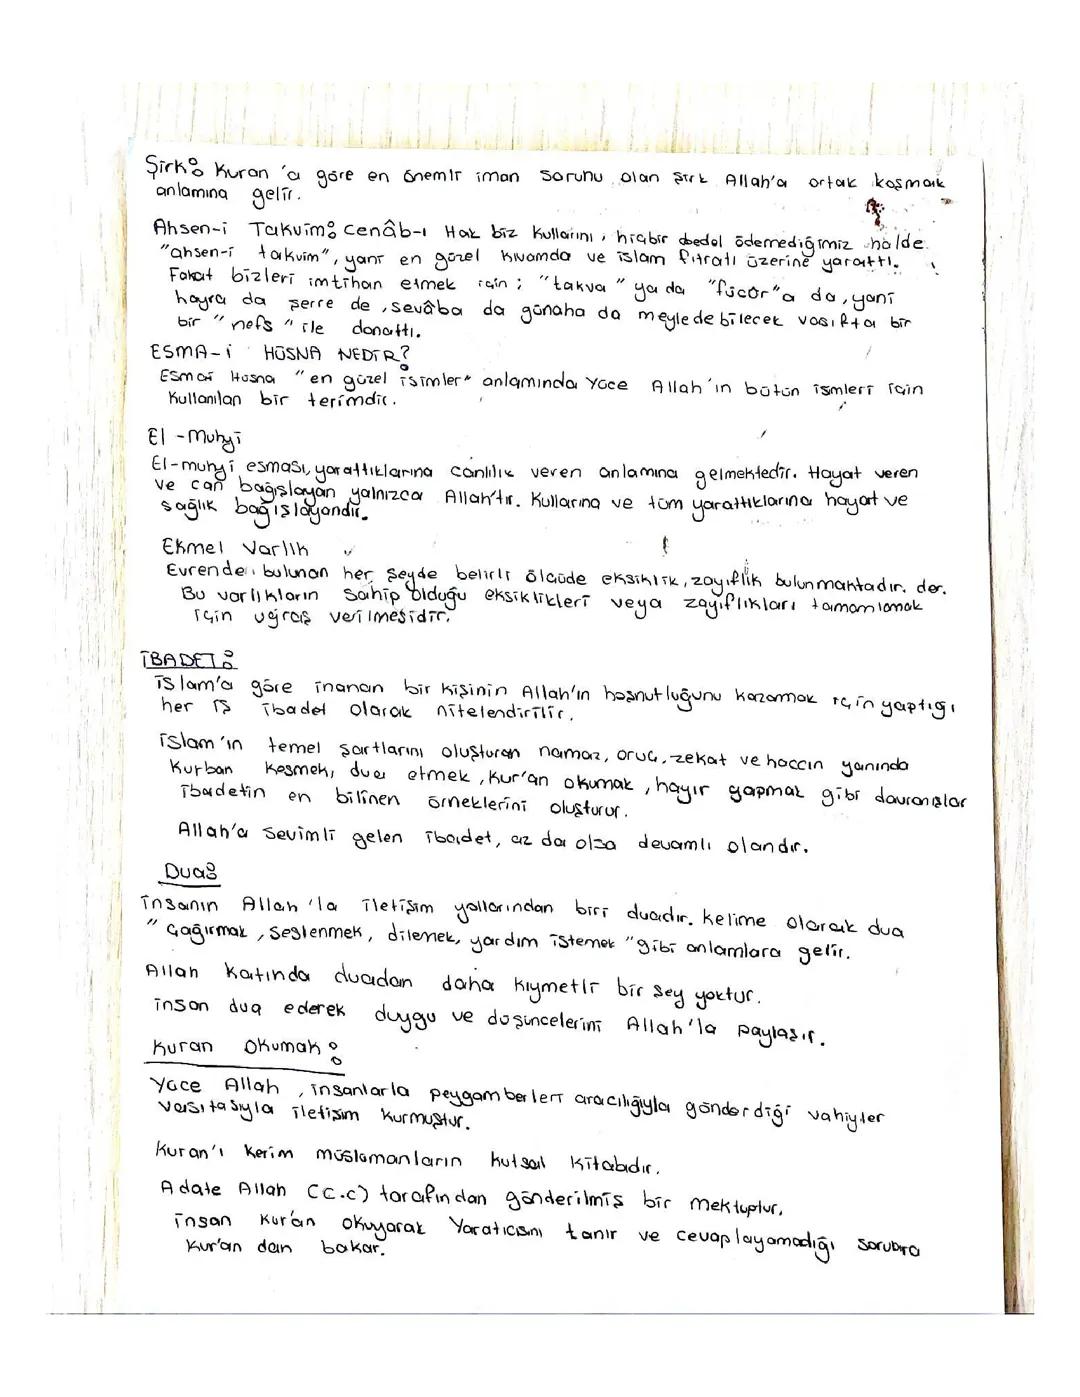 Şirk: Kuran'a göre en önemli iman sorunu olan şirk Allah'a ortak koşmak
anlamına gelir.
Ahsen-i Takvim: Cenâb-ı Hak biz kullarını, hiçbir bedel ödemediğimiz halde
"ahsen-i takvim", yani en güzel kıvamda ve islam fıtratı üzerine yarattı.
Fakat bizleri imtihan etmek için; "takva" ya da "fücûr"a da, yani
hayra da şerre de, sevâba da günaha da meyledebilecek vasıfta bir
bir "nefs" ile donattı.
ESMA-İ HÜSNA NEDİR?
Esmai Hüsna "en güzel isimler" anlamında Yüce Allah'ın bütün ismleri için
kullanılan bir terimdir.
El-Muhyi
El-muhyi esması, yarattıklarına canlılık veren anlamına gelmektedir. Hayat veren
ve can bağışlayan yalnızca Allah'tır. Kullarına ve tüm yarattıklarına hayat ve
sağlık bağışlayandır.
Ekmel Varlık
Evrende bulunan her şeyde belirli ölçüde eksiklik, zayıflık bulunmaktadır. der.
Bu varlıkların sahip olduğu eksiklikleri veya zayıflıkları tamamlamak
için uğraş verilmesidir.
İBADET:
İslam'a göre inanan bir kişinin Allah'ın hoşnutluğunu kazanmak için yaptığı
her iş ibadet olarak nitelendirilir.
İslam'ın temel şartlarını oluşturan namaz, oruç, zekat ve haccın yanında
Kurban kesmek, dua etmek, Kur'an okumak, hayır yapmak gibi davranışlar
ibadetin en bilinen örneklerini oluşturur.
Allah'a sevimli gelen ibadet, az da olsa devamlı olandır.
Dua:
İnsanın Allah'la iletişim yollarından biri duadır. Kelime olarak dua
"Çağırmak, seslenmek, dilemek, yardım istemek" gibi anlamlara gelir.
Allah katında duadan daha kıymetli bir şey yoktur.
İnsan dua ederek duygu ve düşüncelerini Allah'la paylaşır.
Kuran Okumak:
Yüce Allah, insanlarla peygamberleri aracılığıyla gönderdiği vahiyler
vasıtasıyla iletişim kurmuştur.
Kuran'ı Kerim müslümanların kutsal kitabıdır.
Adate Allah (c.c) tarafından gönderilmiş bir mektuptur.
İnsan Kur'an okuyarak Yaratıcısını tanır ve cevaplayamadığı
Kur'an dan bakar.